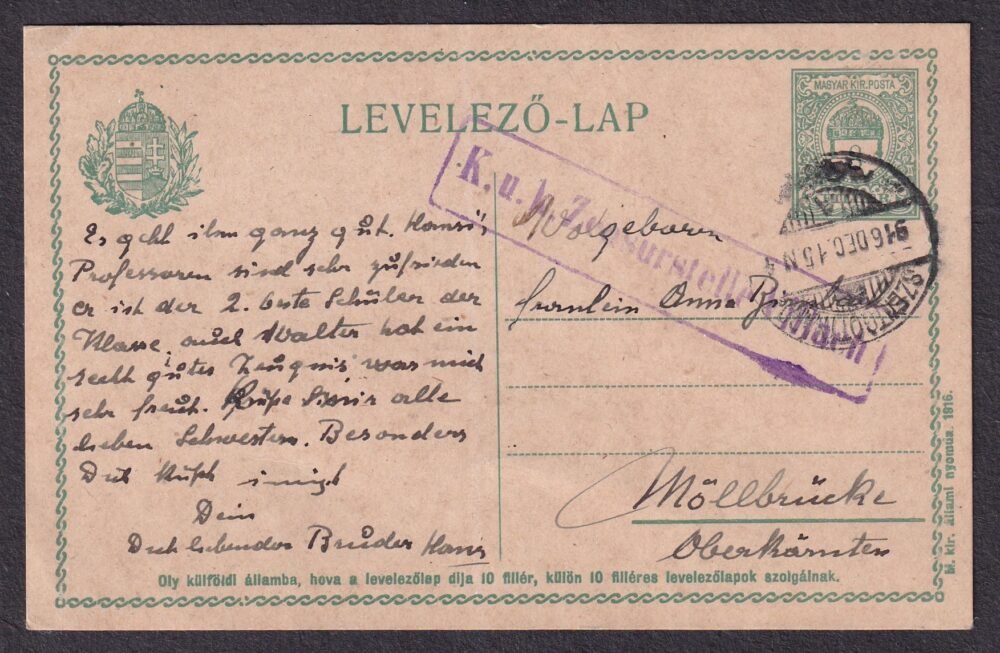 LEVELEZŐ-LAP
MAGYAR KIR. POSTA
916 DEC. 15 N 4
K. u. k. Zensurstelle
Es geht ihm ganz gut. Hansi's
Professoren sind sehr zufrieden
er ist der 2. beste Schüler der
Klasse, auch Walter hat ein
recht gutes Zeugnis was mich
sehr freut. Grüße mir alle
lieben Schwestern. Besonders
Dich küßt innigst
Dein
Dich liebender Bruder Hans
Wolgeboren
Fräulein Anna
Möllbrücke
Oberkärnten
Oly külföldi államba, hova a levelezőlap dija 10 fillér, külön 10 filléres levelezőlapok szolgálnak.
M. kir. állami nyomda. 1916.